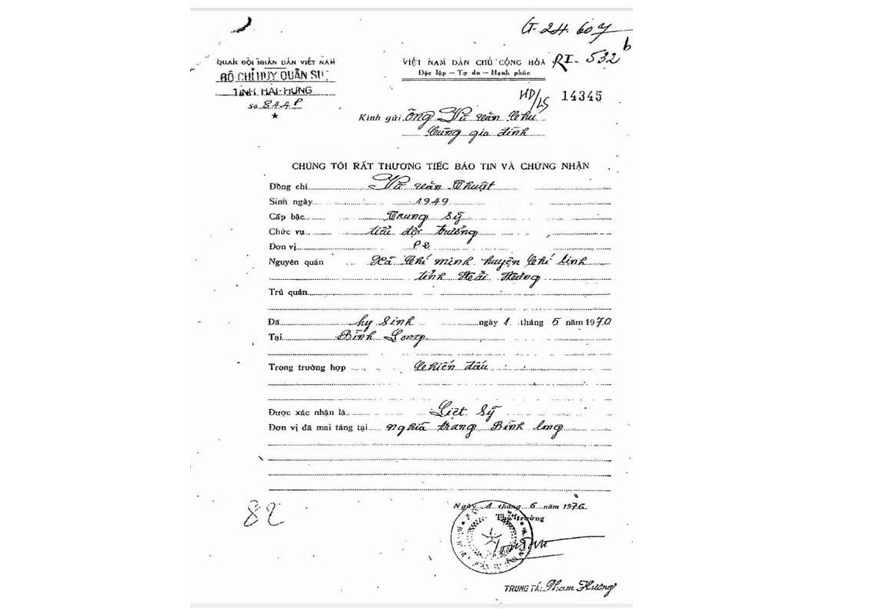 G. 24. 60 7
QUÂN ĐỘI NHÂN DÂN VIỆT NAM
BỘ CHỈ HUY QUÂN SỰ
TỈNH HẢI-HƯNG
Số 8AAP
★
VIỆT NAM DÂN CHỦ CỘNG HÒA
Độc lập — Tự do — Hạnh phúc
RI- 532 b
HD/LS 14345
Kính gửi Ông Vũ Văn Chu
Cùng gia đình
CHÚNG TÔI RẤT THƯƠNG TIẾC BÁO TIN VÀ CHỨNG NHẬN
Đồng chí Vũ Văn Thuật
Sinh ngày 1949
Cấp bậc Trung sỹ
Chức vụ tiểu đội trưởng
Đơn vị P2
Nguyên quán Xã Chí minh huyện Chí linh
tỉnh Hải Hưng
Trú quán
Đã hy sinh ngày 1 tháng 5 năm 1970
Tại Bình Long
Trong trường hợp Chiến đấu
Được xác nhận là Liệt sỹ
Đơn vị đã mai táng tại nghĩa trang Bình long
82
Ngày 1 tháng 6 năm 1976
Thủ trưởng
TRUNG TÁ: Phạm Hường